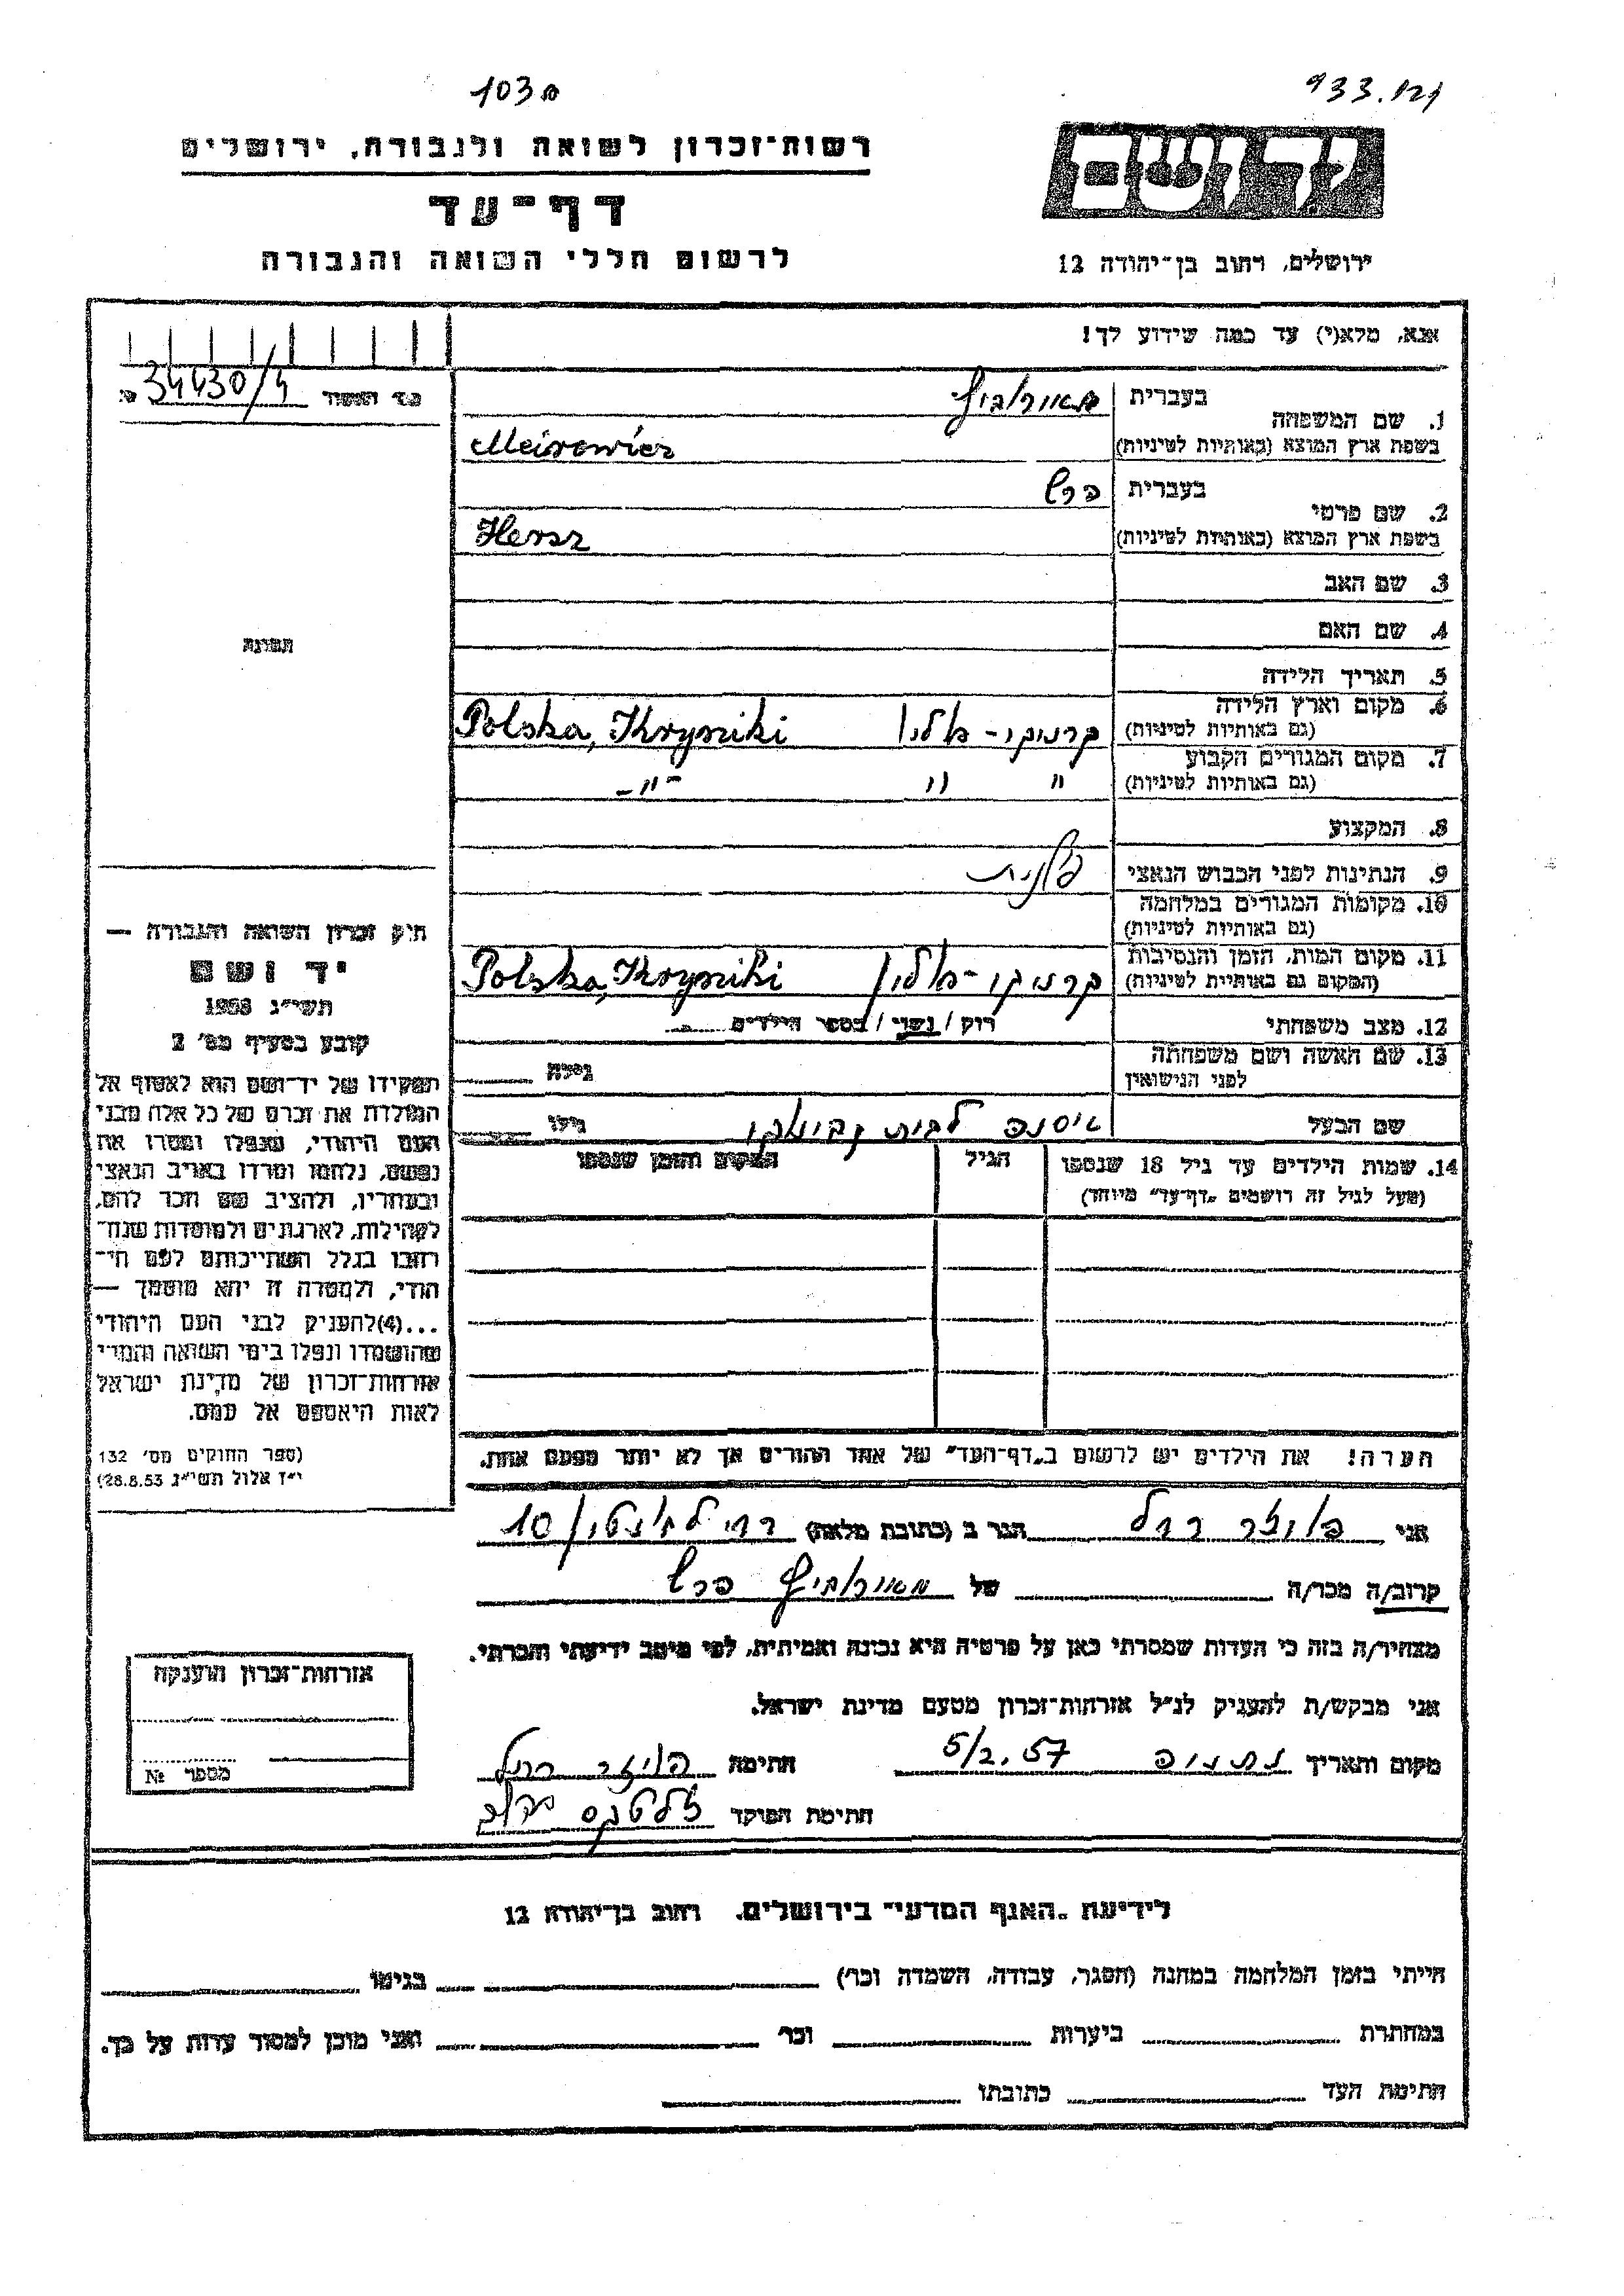 103מ
933.121
רשות־זכרון לשואה ולגבורה, ירושלים
דף־עד
לרשום חללי השואה והגבורה
יד ושם
ירושלים, רחוב בן־יהודה 12
אנא, מלא(י) עד כמה שידוע לך!
34430/4
1. שם המשפחה
בעברית מאירוביץ
בשפת ארץ המוצא (באותיות לטיניות) Meirowicz
2. שם פרטי
בעברית הרש
בשפת ארץ המוצא (באותיות לטיניות) Hersz
3. שם האב
4. שם האם
5. תאריך הלידה
6. מקום וארץ הלידה
(גם באותיות לטיניות) קריניקי - פולין Polska, Krynki
7. מקום המגורים הקבוע
(גם באותיות לטיניות) " " -"-
8. המקצוע
9. הנתינות לפני הכבוש הנאצי פולנית
10. מקומות המגורים במלחמה
(גם באותיות לטיניות)
11. מקום המות, הזמן והנסיבות
(המקום גם באותיות לטיניות) קריניקי - פולין Polska, Krynki
12. מצב משפחתי רוק / נשוי / מספר הילדים
13. שם האשה ושם משפחתה
לפני הנישואין גילה
שם הבעל גילו
14. שמות הילדים עד גיל 18 שנספו הגיל המקום והזמן שנספו
(מעל לגיל זה רושמים "דף־עד" מיוחד)
הערה! את הילדים יש לרשום ב"דף־העד" של אחד ההורים אך לא יותר מפעם אחת.
תמונה
חוק זכרון השואה והגבורה —
יד ושם
תשי"ג 1953
קובע בסעיף מס' 2
תפקידו של יד־ושם הוא לאסוף אל
המולדת את זכרם של כל אלה מבני
העם היהודי, שנפלו ומסרו את
נפשם, נלחמו ומרדו באויב הנאצי
ובעוזריו, ולהציב שם וזכר להם,
לקהילות, לארגונים ולמוסדות שנח־
רבו בגלל השתייכותם לעם הי־
הודי, ולמטרה זו יהא מוסמך —
...(4)להעניק לבני העם היהודי
שהושמדו ונפלו בימי השואה והמרי
אזרחות־זכרון של מדינת ישראל
לאות היאספם אל עמם.
(ספר החוקים מס' 132
י"ז אלול תשי"ג 28.8.53)
אני הגר ב (כתובת מלאה) 10
קרוב/ה מכר/ה של מאירוביץ הרש
מצהיר/ה בזה כי העדות שמסרתי כאן על פרטיה היא נכונה ואמיתית, לפי מיטב ידיעתי והכרתי.
אני מבקש/ת להעניק לנ"ל אזרחות־זכרון מטעם מדינת ישראל.
מקום ותאריך נתניה 5/2.57 חתימה
חתימת הפוקד
אזרחות־זכרון הוענקה
מספר №
לידיעת "האגף המדעי" בירושלים, רחוב בן־יהודה 12
הייתי בזמן המלחמה במחנה (הסגר, עבודה, השמדה וכו') בגיטו
במחתרת ביערות וכו' ואני מוכן למסור עדות על כך.
חתימת העד כתובתו